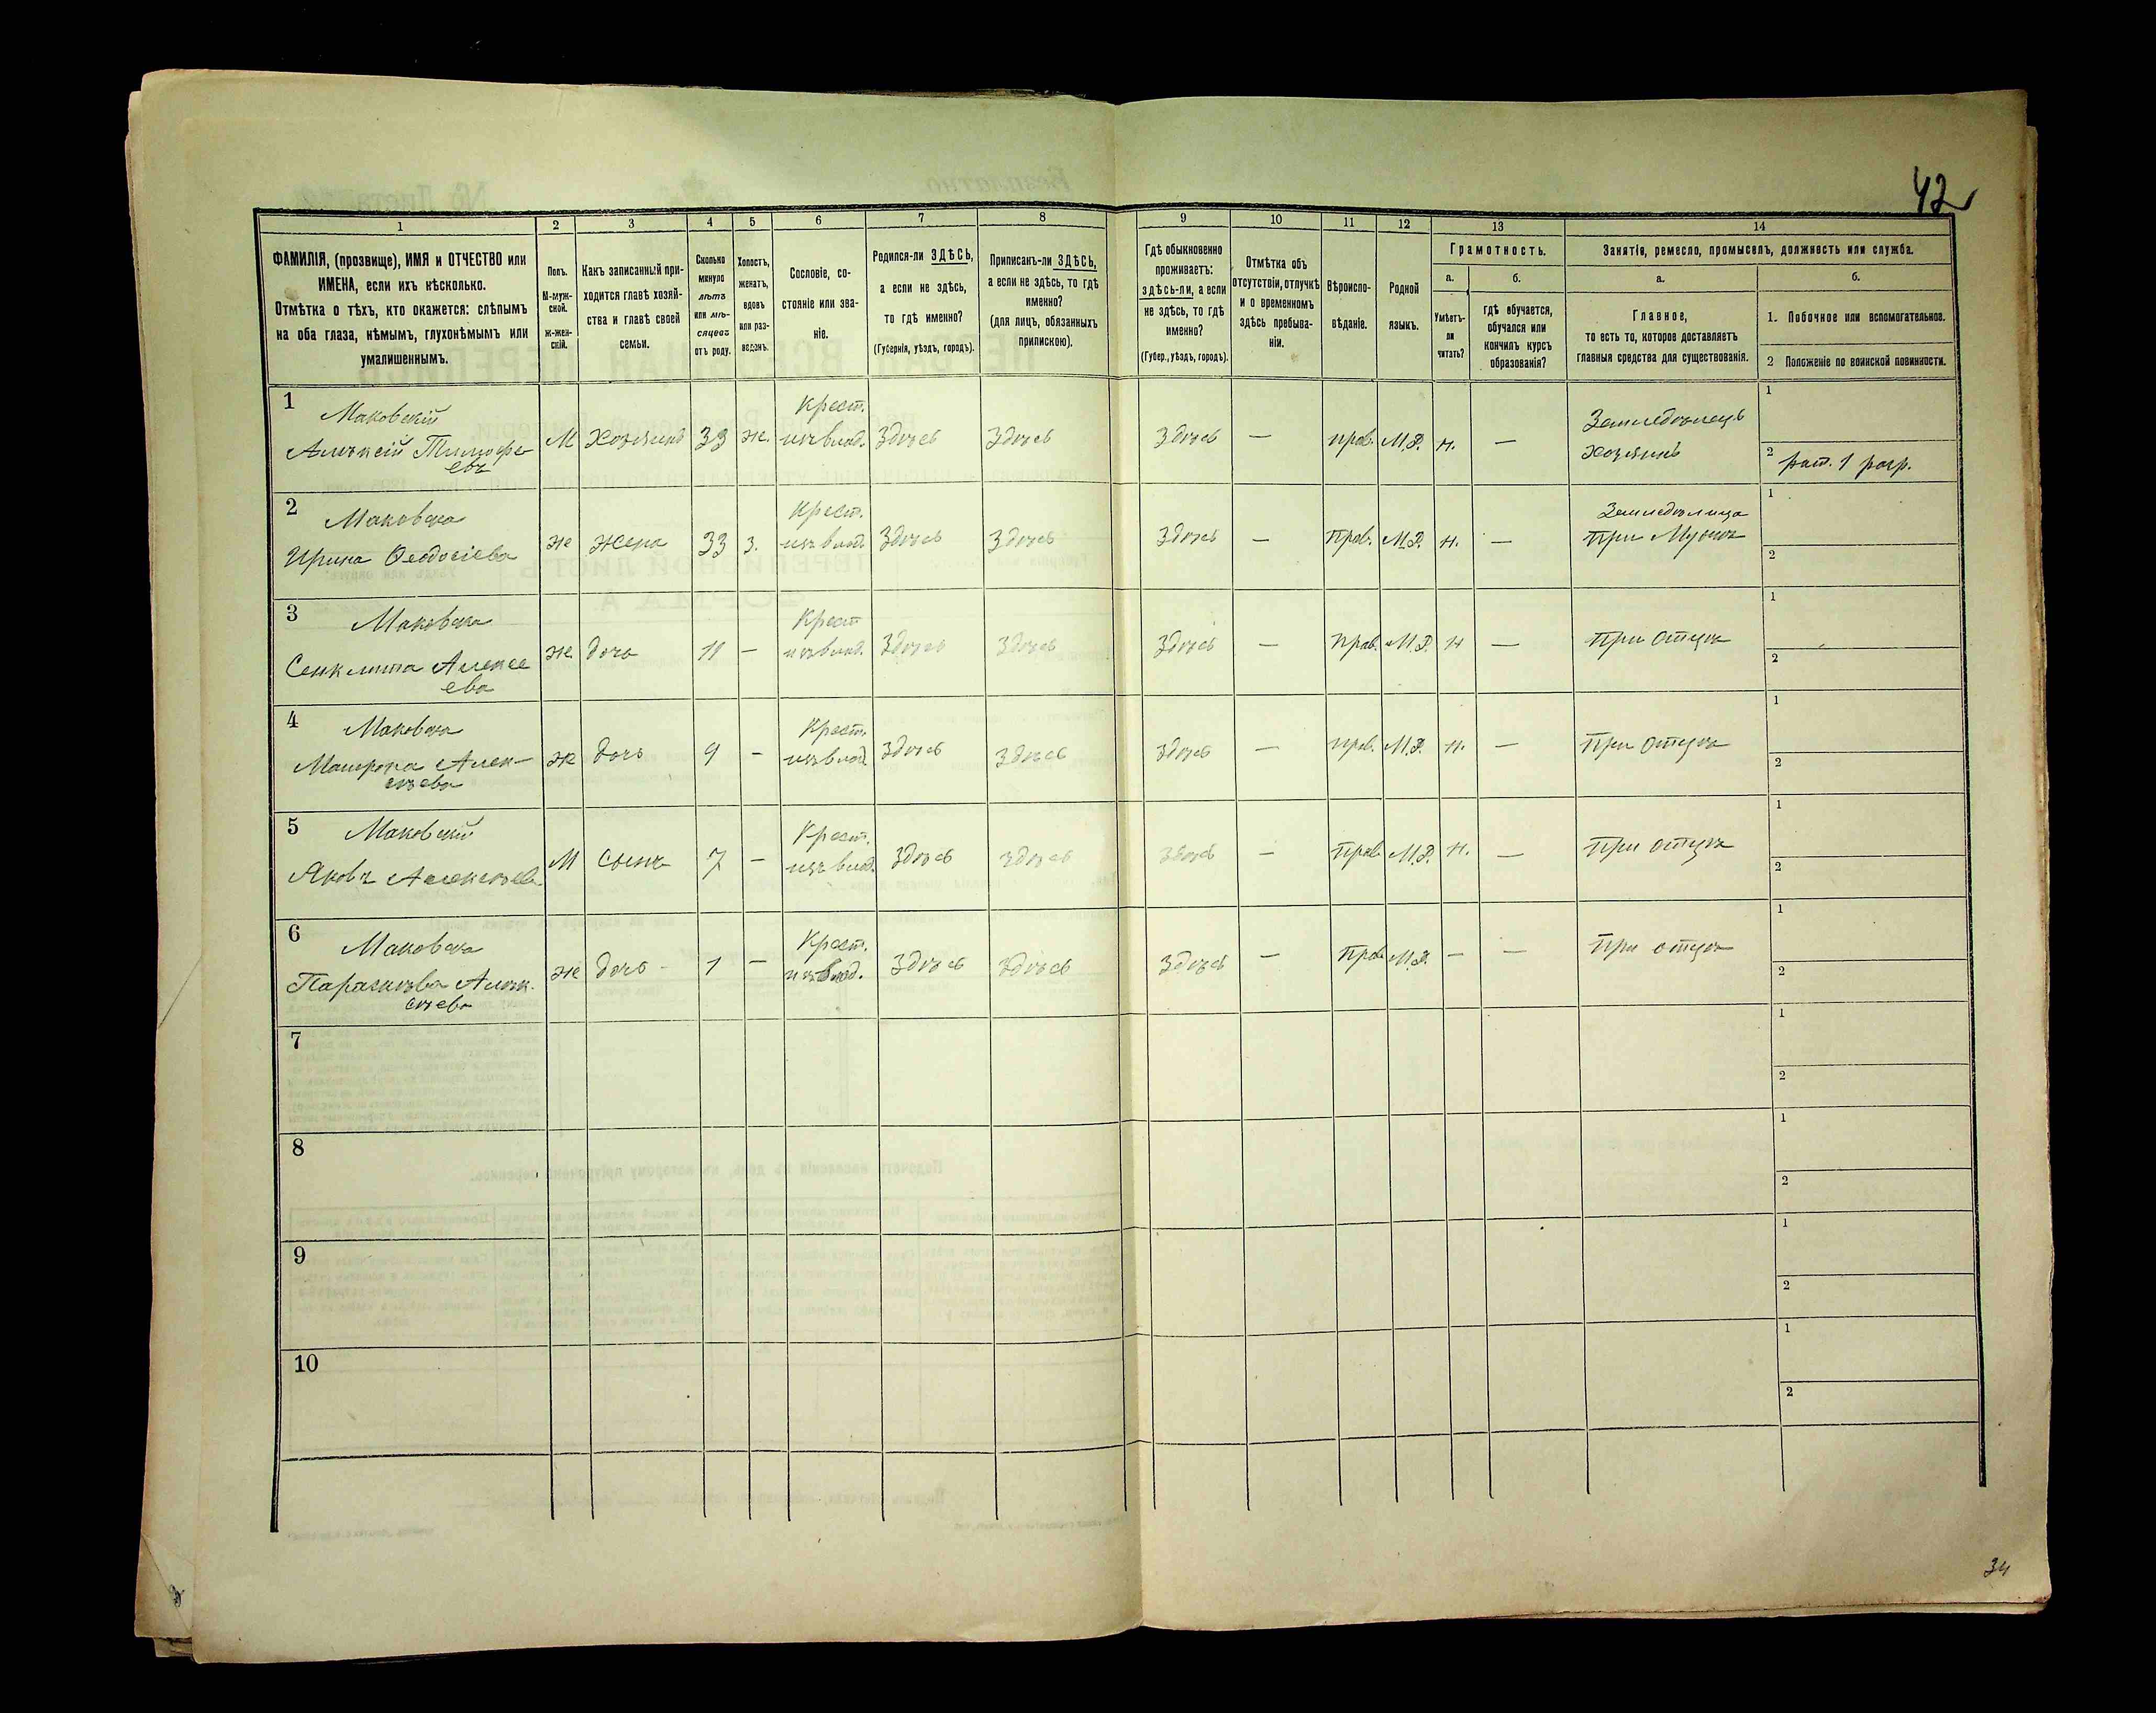 42
1 2 3 4 5 6 7 8 9 10 11 12 13 14
ФАМИЛІЯ, (прозвище), ИМЯ и ОТЧЕСТВО или
ИМЕНА, если ихъ нѣсколько.
Отмѣтка о тѣхъ, кто окажется: слѣпымъ
на оба глаза, нѣмымъ, глухонѣмымъ или
умалишеннымъ.
Полъ.
М-муж-
ской.
ж-жен-
скій.
Какъ записанный при-
ходится главѣ хозяй-
ства и главѣ своей
семьи.
Сколько
минуло
лѣтъ
или мѣ-
сяцевъ
отъ роду.
Холостъ,
женатъ,
вдовъ
или раз-
веденъ.
Сословіе, со-
стояніе или зва-
ніе.
Родился-ли ЗДѢСЬ,
а если не здѣсь,
то гдѣ именно?
(Губернія, уѣздъ, городъ).
Приписанъ-ли ЗДѢСЬ,
а если не здѣсь, то гдѣ
именно?
(для лицъ, обязанныхъ
припискою).
Гдѣ обыкновенно
проживаетъ:
здѣсь-ли, а если
не здѣсь, то гдѣ
именно?
(Губер., уѣздъ, городъ).
Отмѣтка объ
отсутствіи, отлучкѣ
и о временномъ
здѣсь пребыва-
ніи.
Вѣроиспо-
вѣданіе.
Родной
языкъ.
Грамотность.
а.
Умѣетъ-
ли
читать?
б.
гдѣ обучается,
обучался или
кончилъ курсъ
образованія?
Занятія, ремесло, промыселъ, должность или служба.
а.
Главное,
то есть то, которое доставляетъ
главныя средства для существованія.
б.
1. Побочное или вспомогательное.
2 Положеніе по воинской повинности.
1
Маковскій
Алексѣй Тимофе-
евъ
М Хозяинъ 33 ж.
Крест.
изъ влад.
Здѣсь Здѣсь Здѣсь — прав. М.Р. н. —
Земледѣлецъ
хозяинъ
1
2 рат. 1 разр.
2
Маковска
Ирина Ѳеодосіева
же Жена 33 з.
Крест.
изъ влад.
Здѣсь Здѣсь Здѣсь — Прав. М.Р. н. —
Земледѣлица
При Мужѣ
1
2
3
Маковска
Сенклита Алексе
ева
же дочь 11 —
Крест
изъ влад.
Здѣсь Здѣсь Здѣсь — Прав. М.Р. н —
При отцѣ
1
2
4
Маковска
Мавра Алек-
сѣева
же дочь 9 —
Крест.
изъ влад
Здѣсь Здѣсь Здѣсь — прав. М.Р. н. —
При отцѣ
1
2
5
Маковскій
Яковъ Алексѣев
М Сынъ 7 —
Крест.
изъ влад.
Здѣсь Здѣсь Здѣсь — Прав М.Р. н. —
При отцѣ
1
2
6
Маковска
Параскѣва Алек-
сѣева
же дочь 1 —
Крест.
изъ влад.
Здѣсь Здѣсь Здѣсь — Прав М.Р. — —
При отцѣ
1
2
7
1
2
8
1
2
9
1
2
10
1
2
34